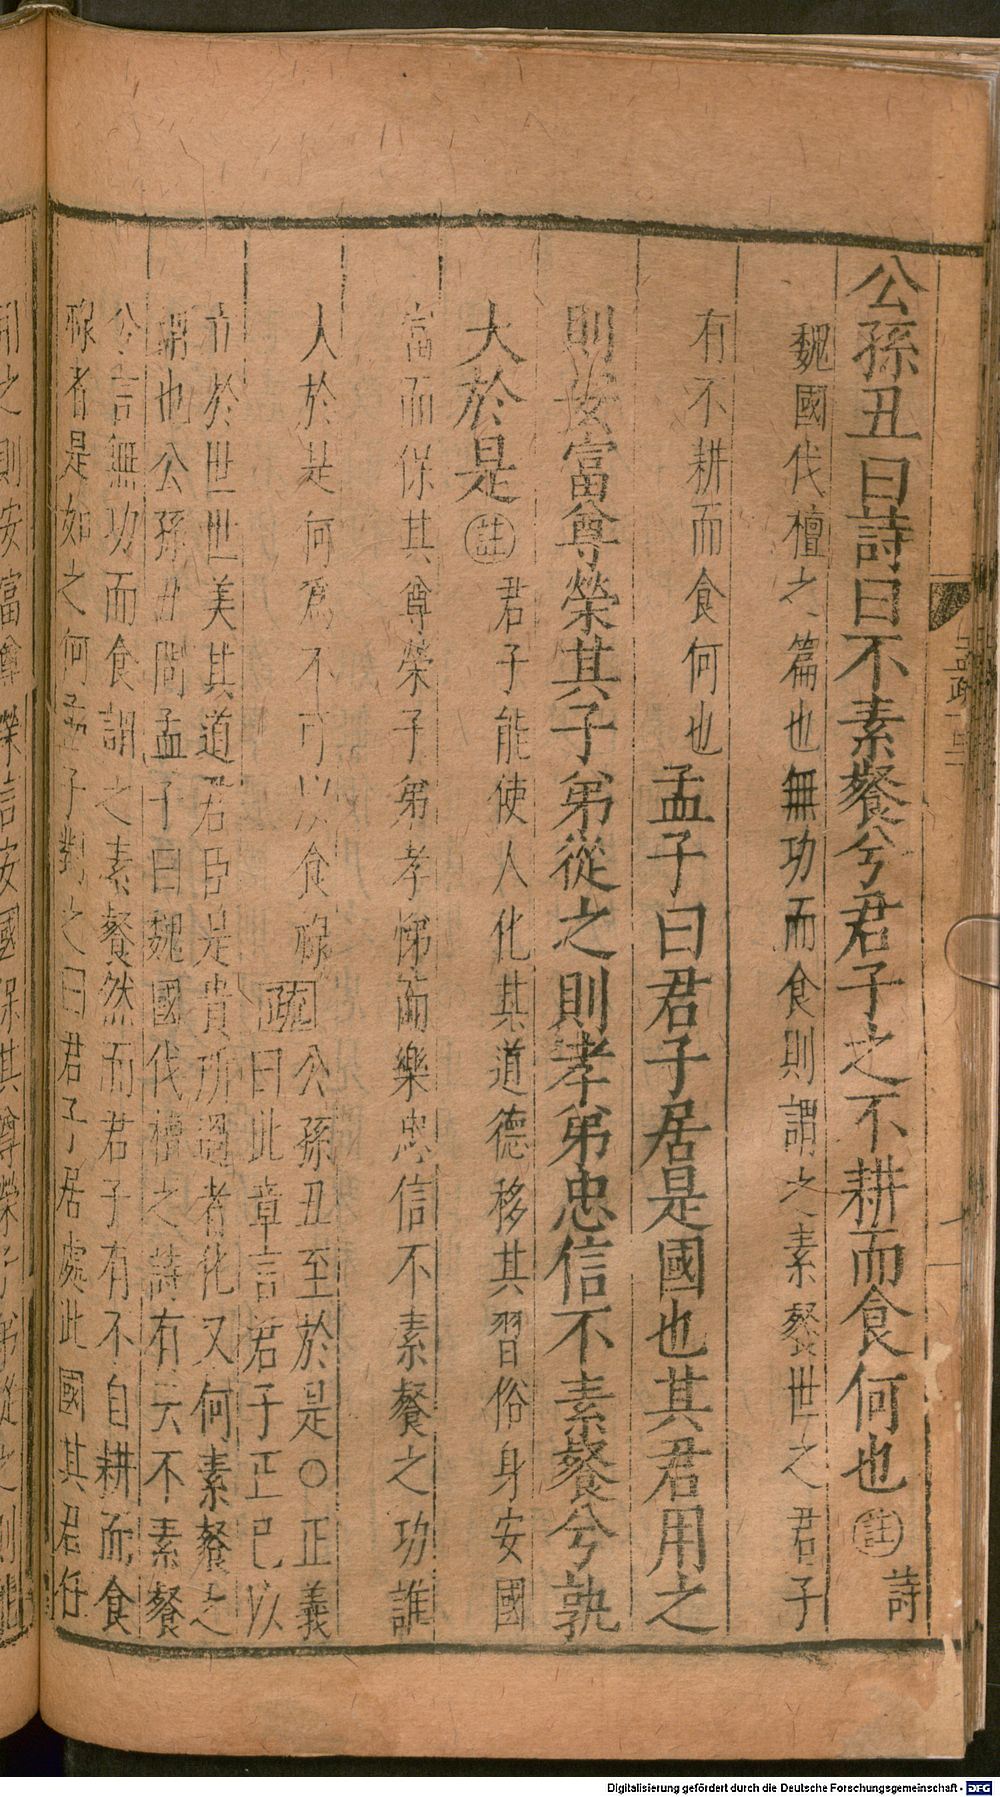 公孫丑曰詩曰不素餐兮君子之不耕而食何也註詩
魏國伐檀之篇也無功而食則謂之素餐世之君子
有不耕而食何也孟子曰君子居是國也其君用之
則安富尊榮其子弟從之則孝弟忠信不素餐兮孰
大於是註君子能使人化其道德移其習俗身安國
富而保其尊榮子弟孝悌而樂忠信不素餐之功誰
人於是何為不可以食祿疏公孫丑至於是○正義
曰此章言君子正己以
立於世世美其道君臣是貴所過者化又何素餐之
謂也公孫丑問孟子曰魏國伐檀之詩有云不素餐
兮言無功而食謂之素餐然而君子有不自耕而食
祿者是如之何孟子對之曰君子居處此國其君任
用之則安富尊榮言安國保其尊榮子弟從之則
Digitalisierung gefördert durch die Deutsche Forschungsgemeinschaft - DFG